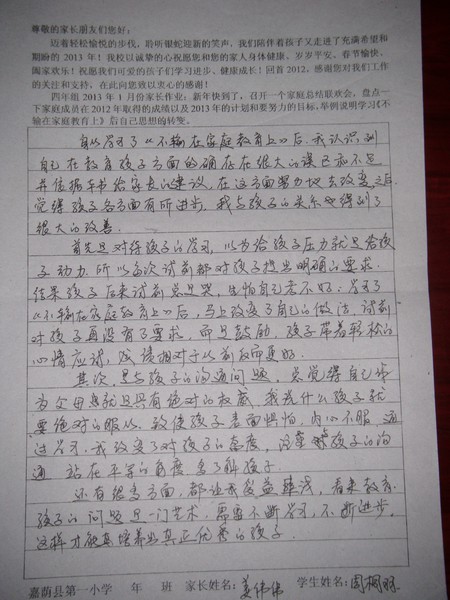 尊敬的家长朋友们您好：
迈着轻松愉悦的步伐，聆听银蛇迎新的笑声，我们陪伴着孩子又走进了充满希望和
期盼的 2013 年！我校以诚挚的心祝愿您和您的家人身体健康、岁岁平安、春节愉快、
阖家欢乐！祝愿我们可爱的孩子们学习进步、健康成长！回首 2012，感谢您对我们工作
的关注和支持，在此向您致以衷心的感谢！
四年组 2013 年 1 月份家长作业：新年快到了，召开一个家庭总结联欢会，盘点一
下家庭成员在 2012 年取得的成绩以及 2013 年的计划和要努力的目标，举例说明学习《不
输在家庭教育上》后自己思想的转变。
自从学习了《不输在家庭教育上》后，我认识到
自己在教育孩子方面的确存在很大的误区和不足
并依据本书给家长的建议，在这方面努力地去改变，之后
觉得孩子各方面有所进步，我与孩子的关系也得到了
很大的改善。
首先是对待孩子的学习，以为给孩子压力就是给孩
子动力，所以每次试前都对孩子提出明确的要求，
结果孩子后来试前总是哭，生怕自己考不好，学习了
《不输在家庭教育上》后，马上改变了自己的做法，试前
对孩子再没有了要求，而是鼓励，孩子带着轻松的
心情应试，成绩相对于从前反而更好。
其次，是与孩子的沟通问题，总觉得自己作
为父母就是具有绝对的权威，我说什么孩子就
要绝对的服从，致使孩子表面惧怕，内心不服，通
过学习，我改变了对孩子的态度，注重与孩子的沟
通，站在平等的角度，多了解孩子。
还有很多方面，都让我受益匪浅，看来教育
孩子的问题是一门艺术，需要不断学习，不断进步，
这样才能真培养出真正优秀的孩子。
嘉荫县第一小学 年 班 家长姓名：姜伟伟 学生姓名：周桐羽